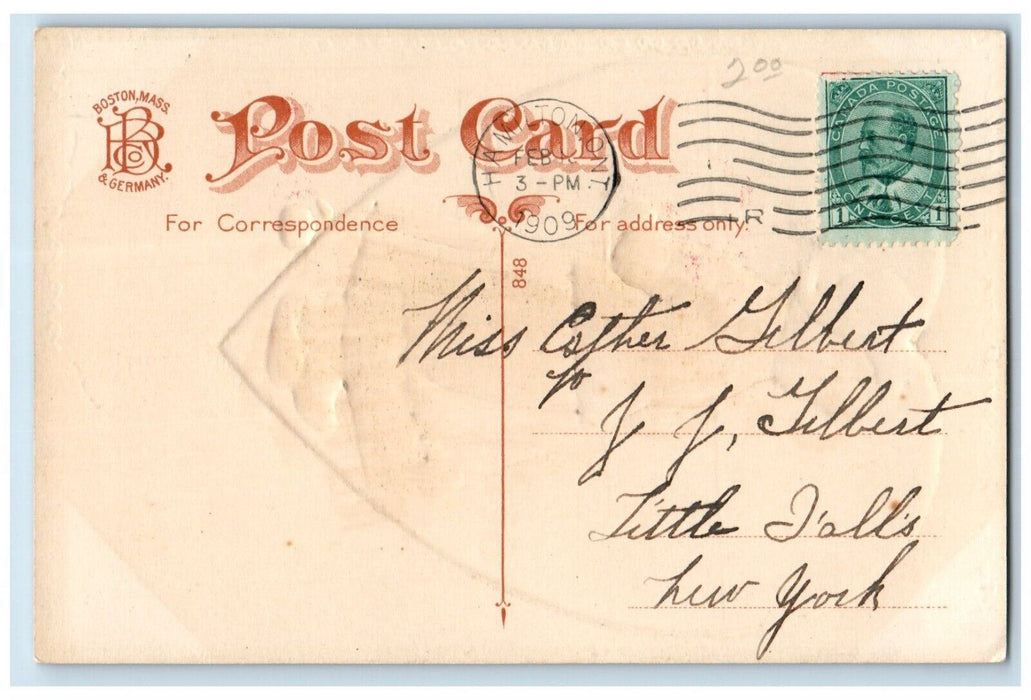 2.00
BOSTON, MASS.
& GERMANY.
Post Card
HAMILTON ONT
FEB
3 - PM
1909
R
CANADA POSTAGE
1 ONE CENT 1
For Correspondence
For address only.
848
Miss Esther Gilbert
c/o
J J, Gilbert
Little Falls
New York